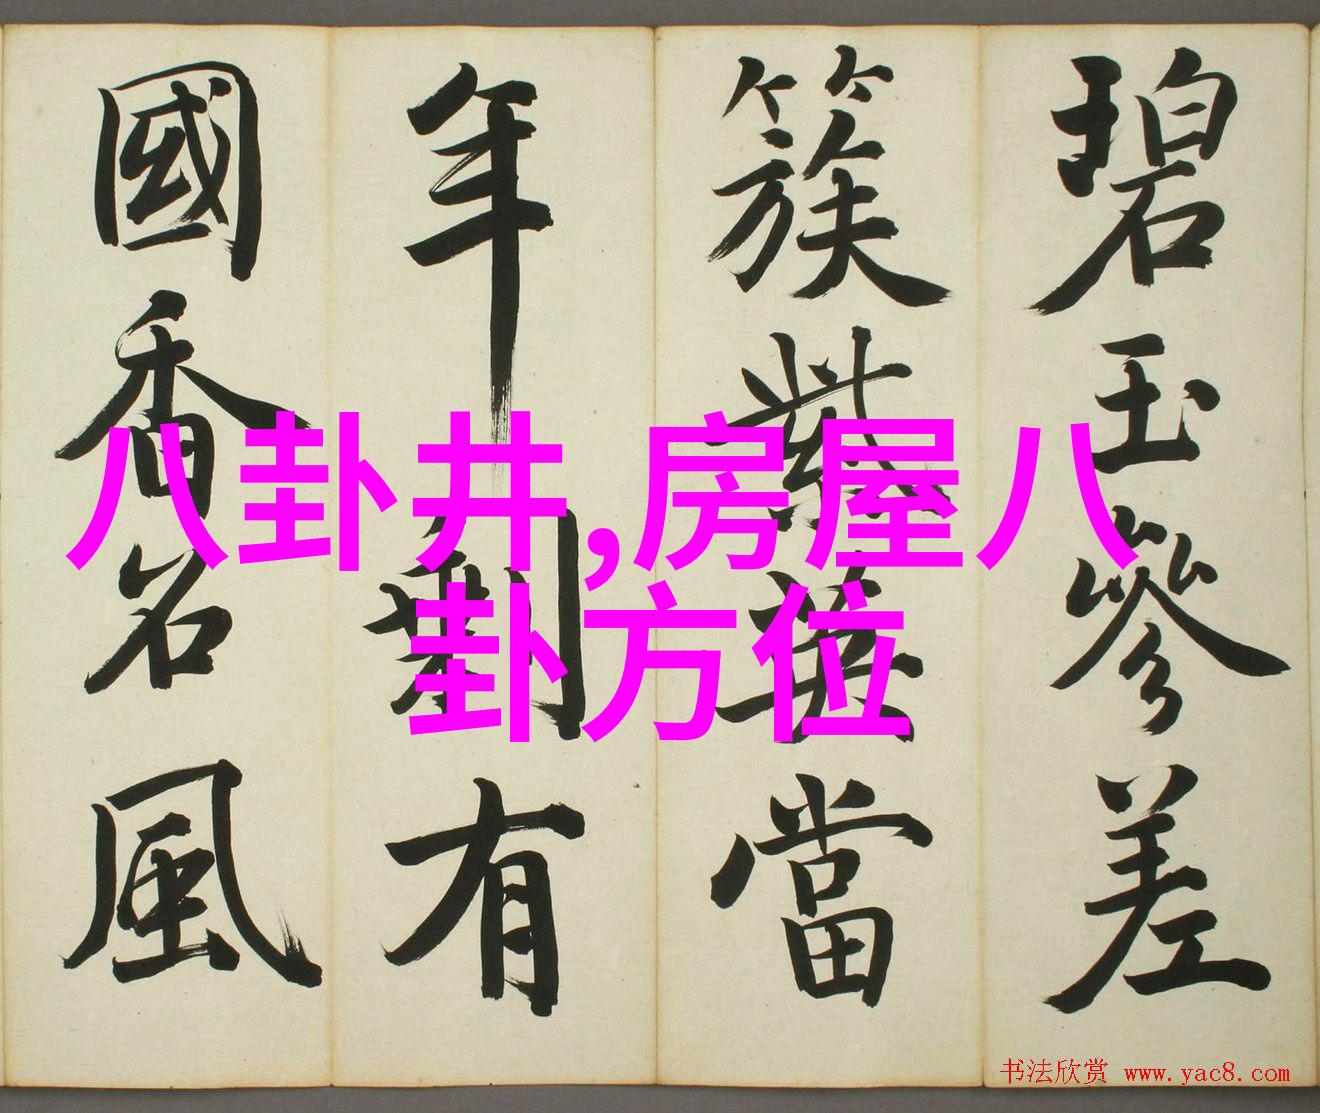 碧玉參差
簇紫英當
年剩有
國香名風
八卦井,房屋八
卦方位
书法欣赏 www.yac8.com